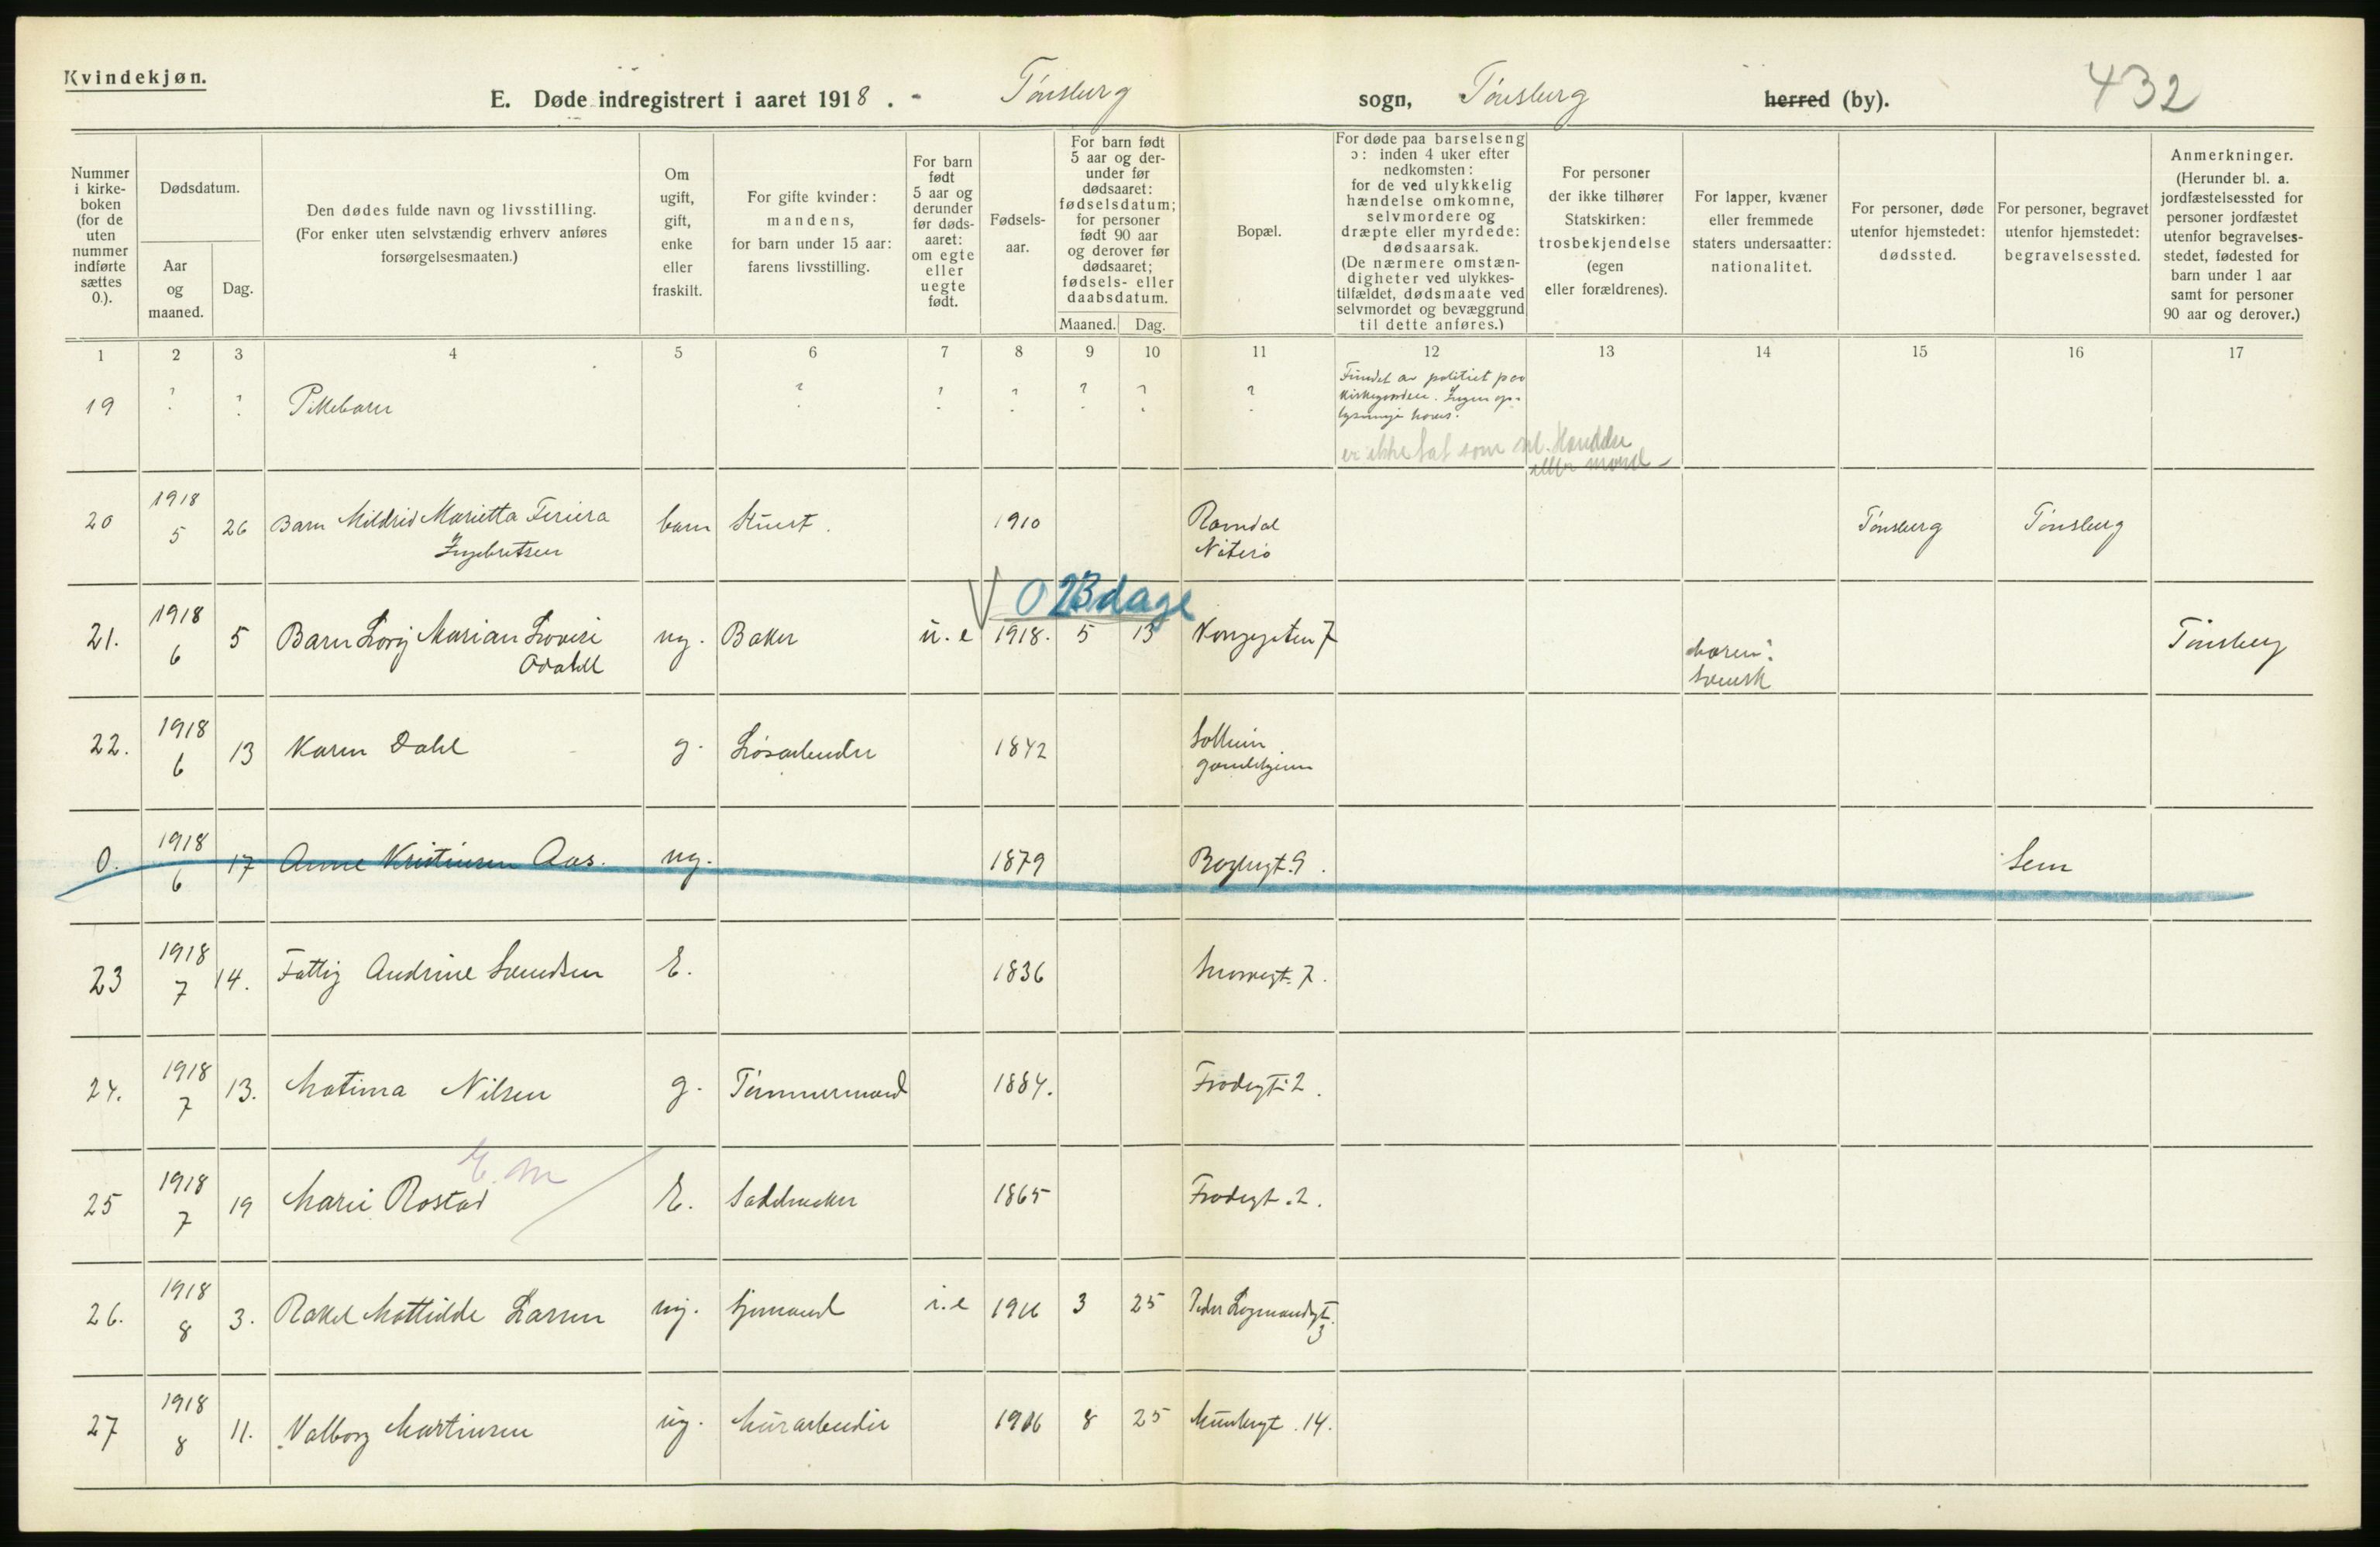 Kvindekjøn.
E. Døde indregistrert i aaret 1918. - Tønsberg sogn, Tønsberg herred (by). 432
Nummer i kirkeboken (for de uten nummer indførte sættes 0.).
Dødsdatum.
Aar og maaned.
Dag.
Den dødes fulde navn og livsstilling.
(For enker uten selvstændig erhverv anføres
forsørgelsesmaaten.)
Om
ugift,
gift,
enke
eller
fraskilt.
For gifte kvinder:
mandens,
for barn under 15 aar:
farens livsstilling.
For barn
født
5 aar og
derunder
før døds-
aaret:
om egte
eller
uegte
født.
Fødsels-
aar.
For barn født
5 aar og der-
under før
dødsaaret:
fødselsdatum;
for personer
født 90 aar
og derover før
dødsaaret;
fødsels- eller
daabsdatum.
Maaned. Dag.
Bopæl.
For døde paa barselseng
ɔ: inden 4 uker efter
nedkomsten:
for de ved ulykkelig
hændelse omkomne,
selvmordere og
dræpte eller myrdede:
dødsaarsak.
(De nærmere omstæn-
digheter ved ulykkes-
tilfældet, dødsmaate ved
selvmordet og bevæggrund
til dette anføres.)
For personer
der ikke tilhører
Statskirken:
trosbekjendelse
(egen
eller forældrenes).
For lapper, kvæner
eller fremmede
staters undersaatter:
nationalitet.
For personer, døde
utenfor hjemstedet:
dødssted.
For personer, begravet
utenfor hjemstedet:
begravelsessted.
Anmerkninger.
(Herunder bl. a.
jordfæstelsessted for
personer jordfæstet
utenfor begravelses-
stedet, fødested for
barn under 1 aar
samt for personer
90 aar og derover.)
1 2 3 4 5 6 7 8 9 10 11 12 13 14 15 16 17
19 ? ? Pikebarn ? ? ? ? ? ? Fundet av politiet paa
kirkegaarden. Ingen op-
lysninger haves.
er ikke tat som ul. hændelse
eller mord
20 1918 5 26 Barn Mildrid Marietta
Ingebretsen barn Stuert. 1910 Ramdal
Nøterø Tønsberg Tønsberg
0 23 dage
21. 1918 6 5 Barn Marian Lovise
ug. Baker u. e 1918. 5 13 Kongegaten 7 moren:
svensk Tønsberg
22. 1918 6 13 Karen Dahl g. Løsarbeider 1842 Solheim
gamlehjem
0. 1918 6 17 Anne Kristinsen Aas. ug. 1879 9. Sem
23 1918 7 14. Fattig Andrine Svendsen E. 1836 Snorregt. 7.
24. 1918 7 13. Matima Nilsen g. Tømmermand 1884. Frodegt. 2.
E. m
25 1918 7 19 Marie Rostad E. Sadelmaker 1865 Frodegt. 2.
26. 1918 8 3. Rakel Mathilde Larsen ug. Sjømand i. e 1916 3 25 Peder Lagmandsgt.
3
27 1918 8 11. Valborg Martinsen ug. Murarbeider 1906 8 25 14.